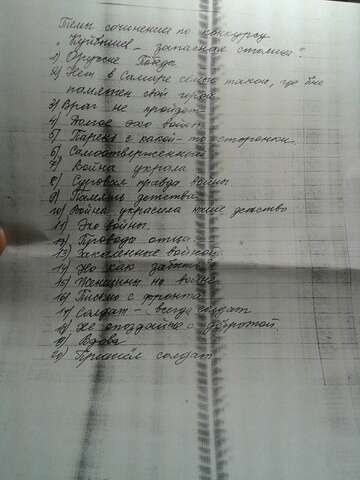 Темы сочинения по конкурсу
"Куйбышев - запасная столица"
1) Оружие Победы
2) Нет в Самаре семьи такой, где б не
памятен свой герой
3) Враг не пройдет
4) Долгое эхо войны
5) Парень с какой-то сторонки.
6) Самоотверженный
7) Война украла
8) Суровая правда войны
9) Память детства
10) Война украсила наше детство
11) Эхо войны.
12) Проводы отца.
13) Закаленные войной.
14) Но как забыть
15) Женщины на войне
16) Письмо с фронта
17) Солдат - всегда солдат
18) Не опоздайте с добротой.
19) Вдова
20) Пришёл солдат